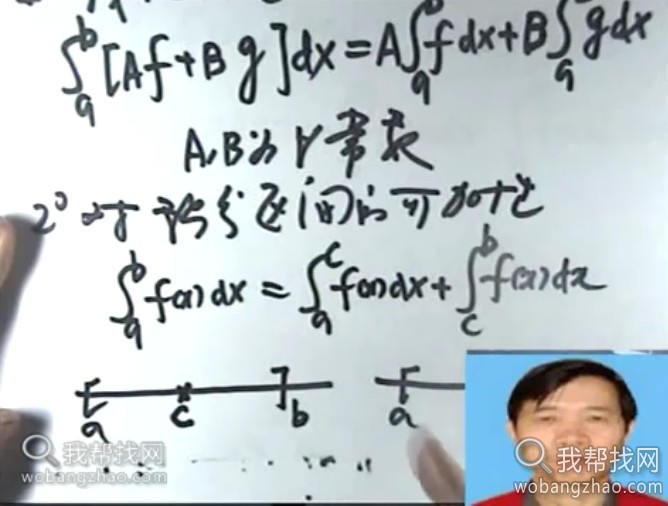 ∫ₐᵇ[Af+Bg]dx=A∫ₐᵇfdx+B∫ₐᵇgdx
A,B为∀常数
2° 对于积分区间的可加性
∫ₐᵇf(x)dx=∫ₐᶜf(x)dx+∫꜀ᵇf(x)dx
a c b a
我帮找网
wobangzhao.com
我帮找网
wobangzhao.com